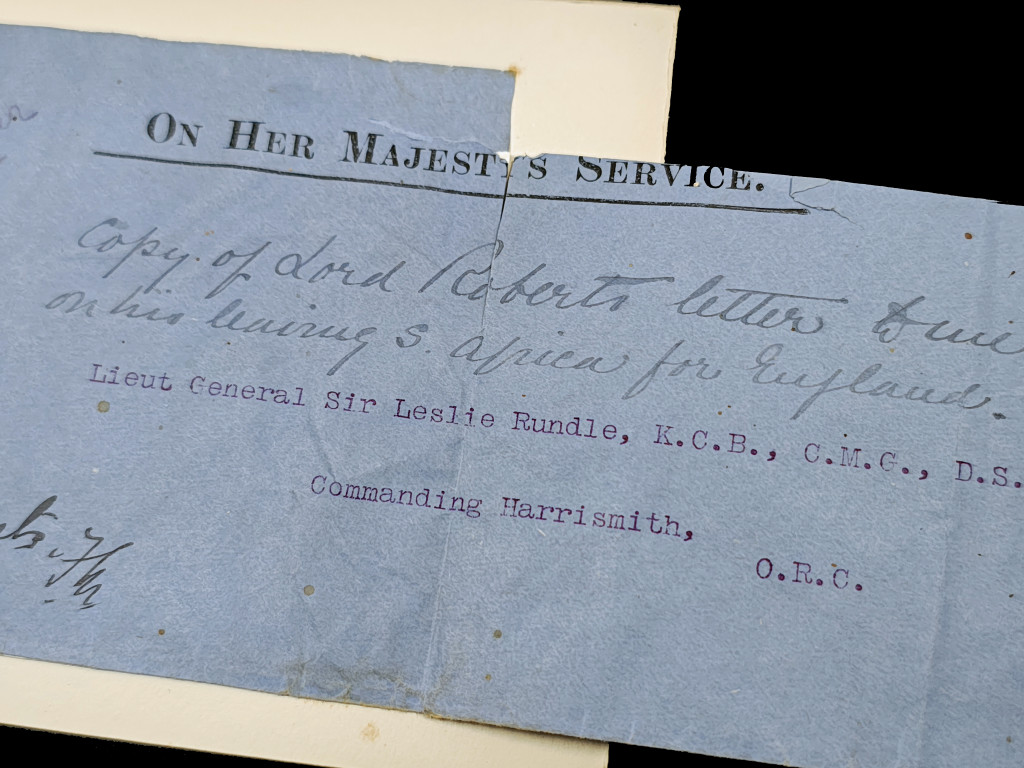 ON HER MAJESTY'S SERVICE.
Copy of Lord Roberts letter to me
on his leaving S. Africa for England.
Lieut General Sir Leslie Rundle, K.C.B., C.M.G., D.S.
Commanding Harrismith,
O.R.C.